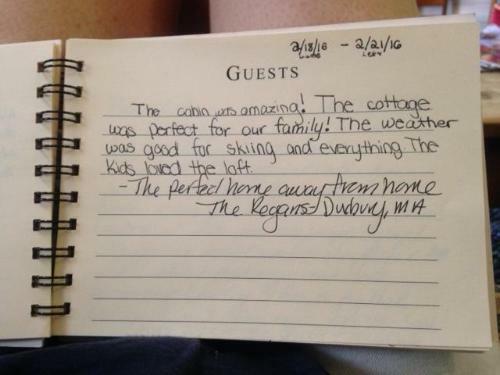 2/18/16 - 2/21/16
came left
GUESTS
The cabin was amazing! The cottage
was perfect for our family! The weather
was good for skiing and everything. The
kids loved the loft.
- The perfect home away from home
The Regans - Duxbury, MA